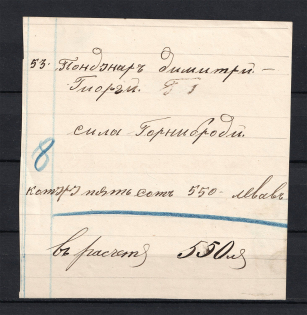 53. Пондзнаръ Димитри –
Гиорги. Б 1
сила Горниброди.
8
котрэ пять сотъ 550 левавъ
въ расчетъ 550 лв